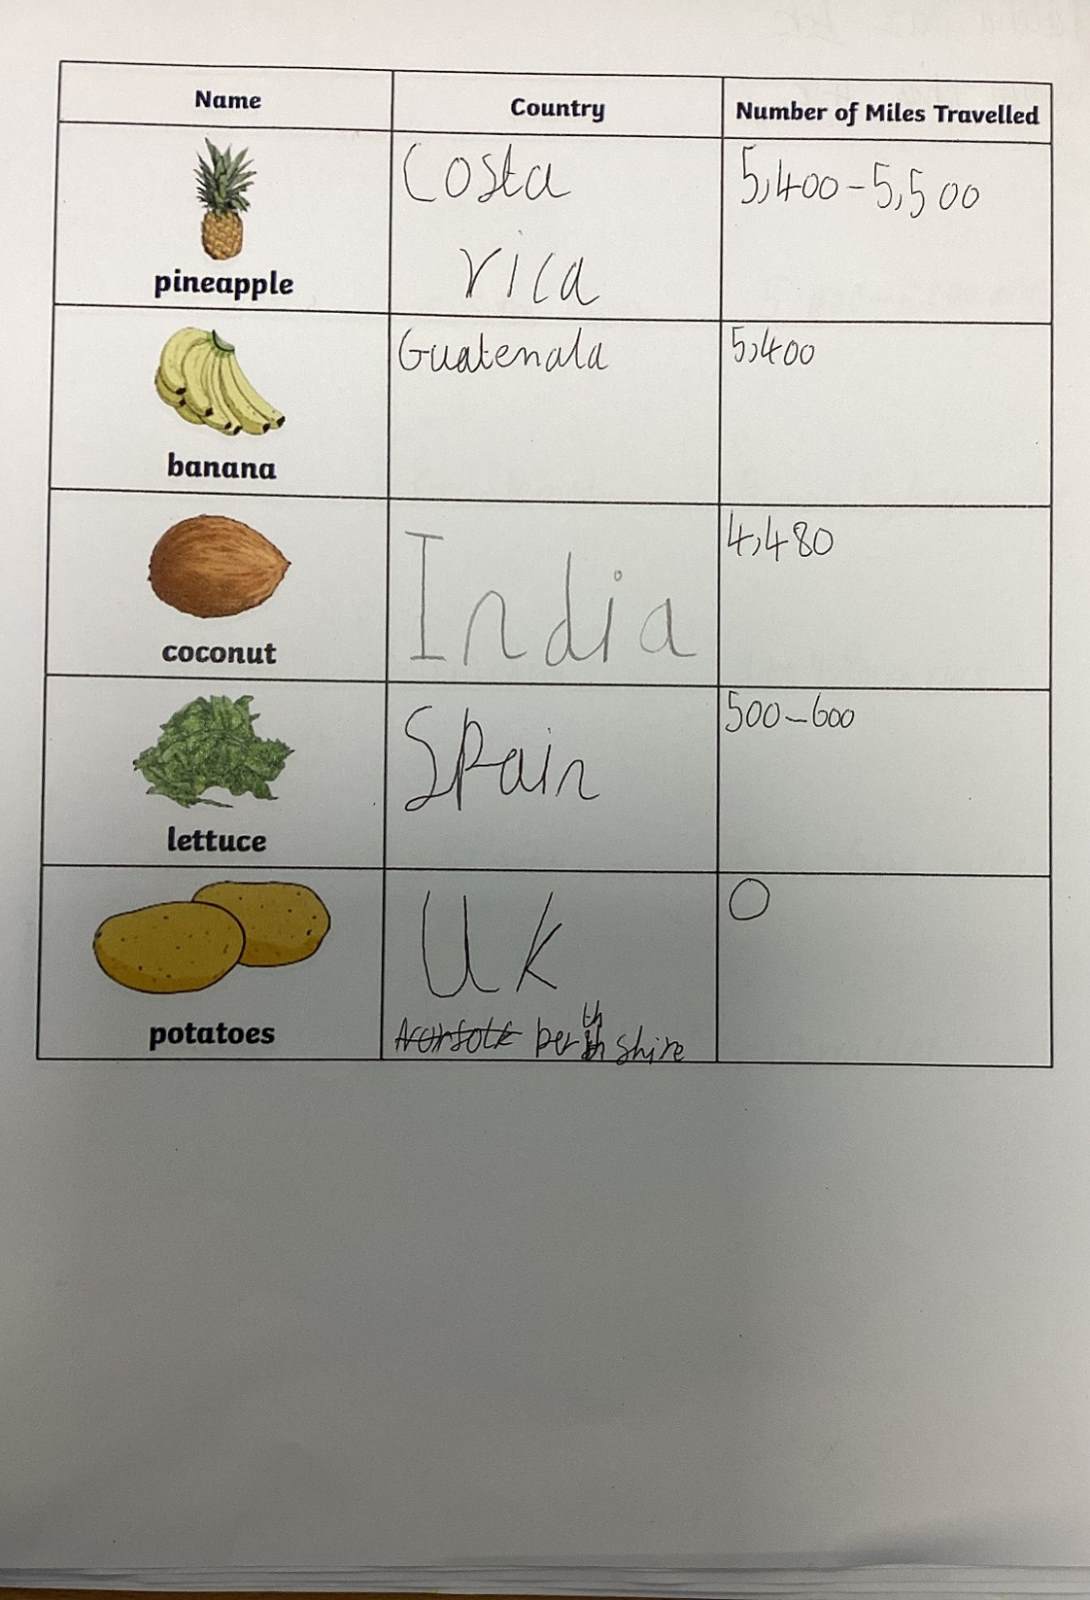 Name Country Number of Miles Travelled
Costa 5,400-5,500
rica
pineapple
Guatenala 5,400
banana
4,480
India
coconut
500-600
Spain
lettuce
0
Uk
potatoes
Norfolk perthshire